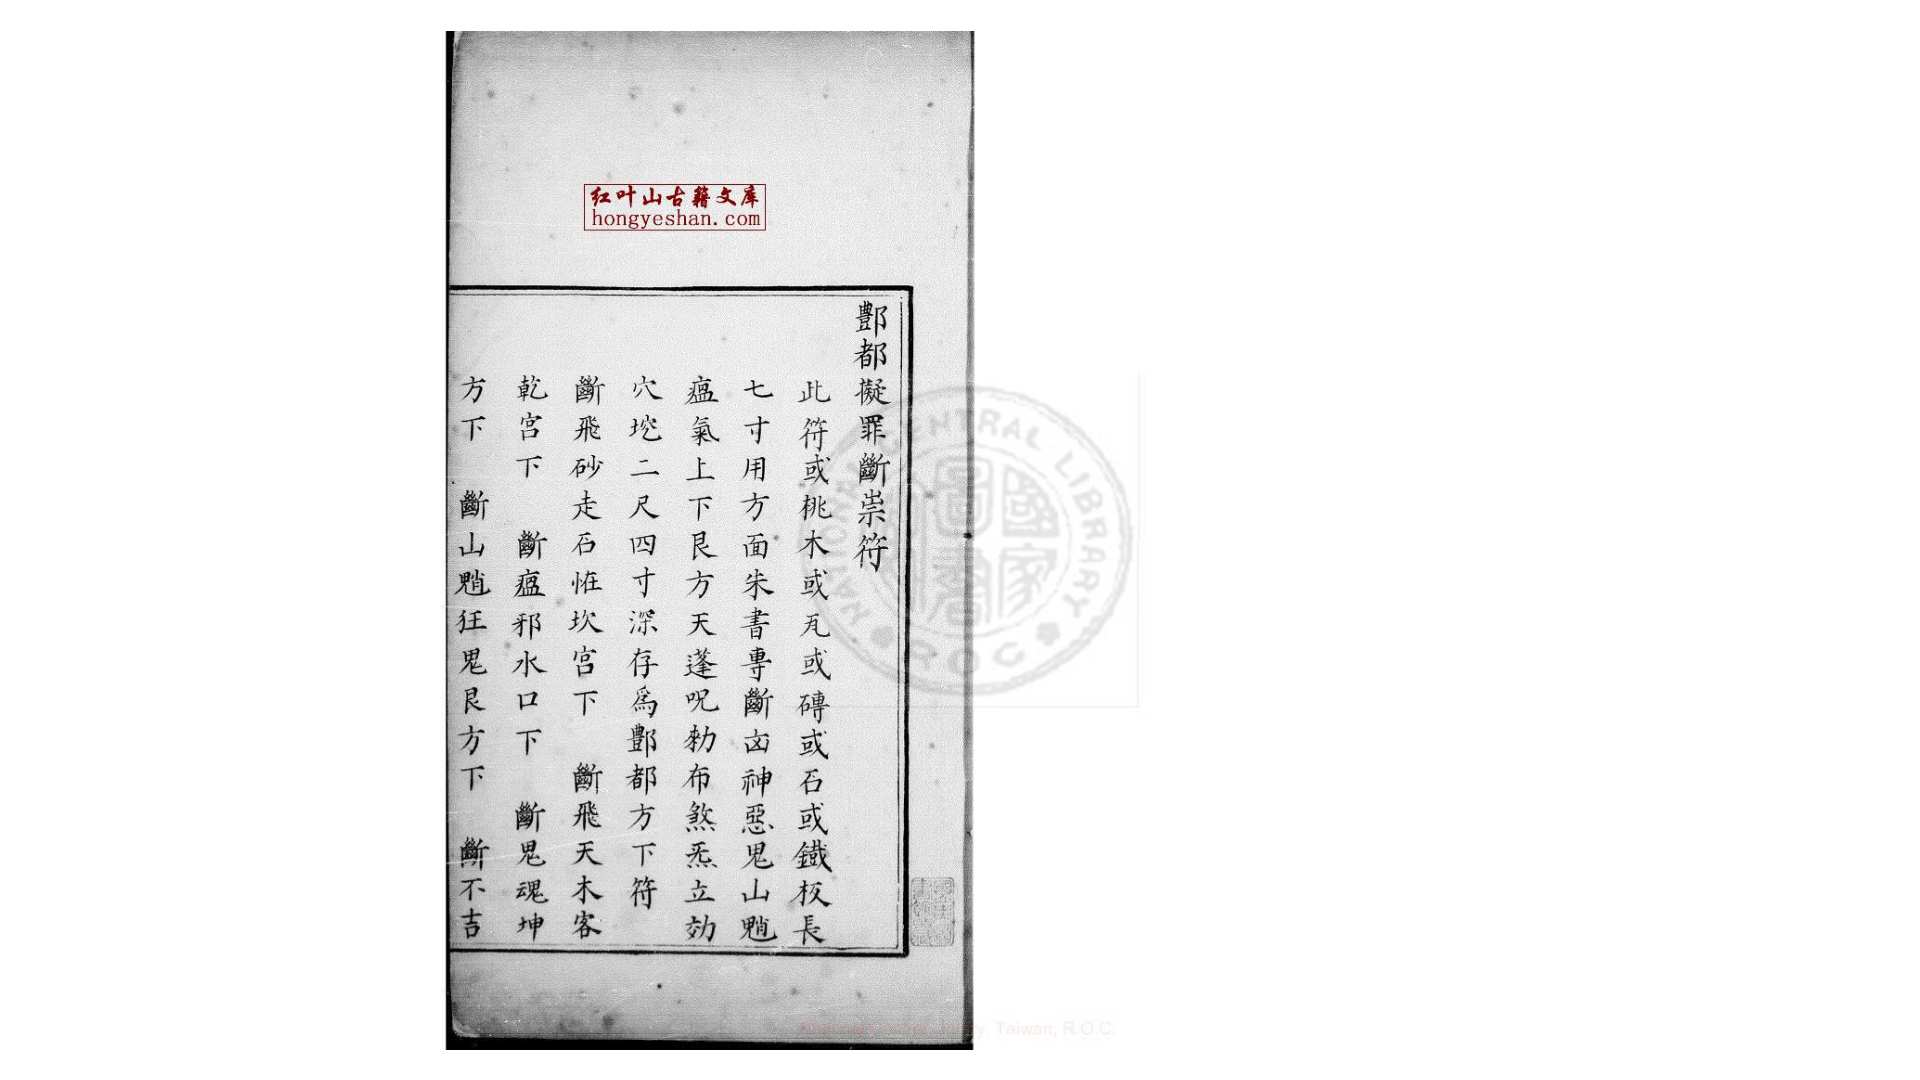 红叶山古籍文库
hongyeshan.com
酆都擬罪斷祟符
此符或桃木或瓦或磚或石或鐵板長
七寸用方面朱書專斷凶神惡鬼山魈
瘟氣上下艮方天蓬呪勑布煞炁立効
穴挖二尺四寸深存爲酆都方下符
斷飛砂走石恠坎宫下　斷飛天木客
乾宫下　斷瘟邪水口下　斷鬼魂坤
方下　斷山魈狂鬼艮方下　斷不吉
NATIONAL CENTRAL LIBRARY
R O C
國家圖書
Taiwan, R.O.C.